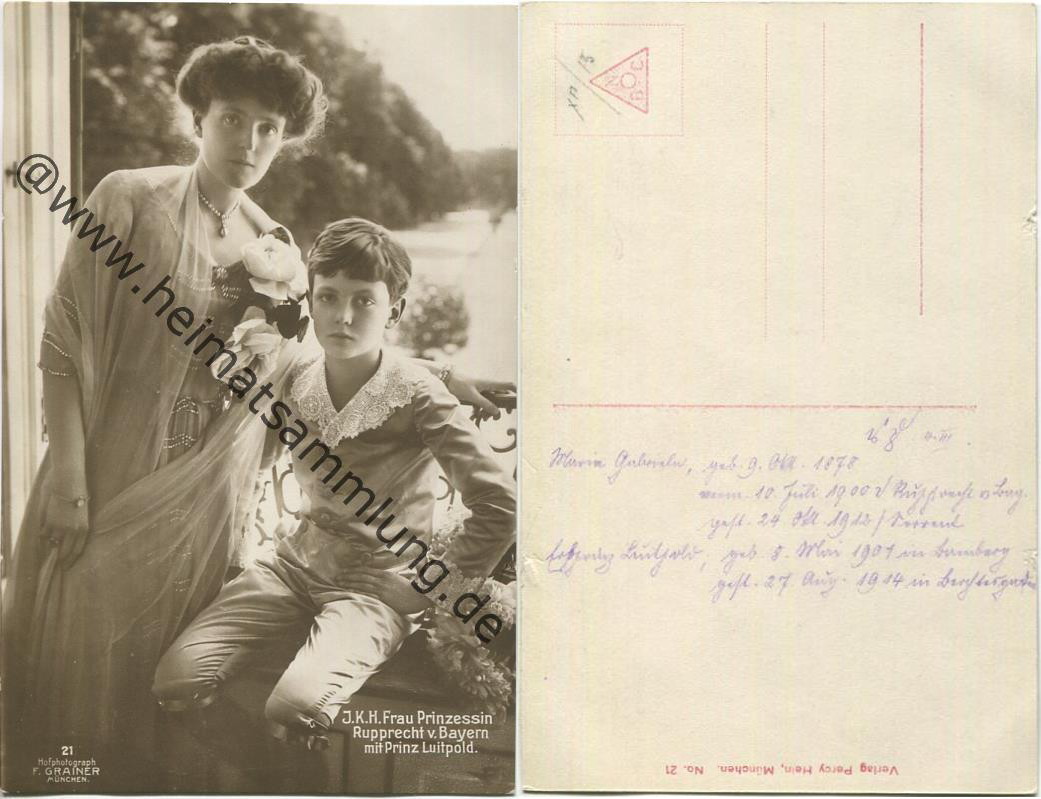 @www.heimatsammlung.de
J.K.H. Frau Prinzessin
Rupprecht v. Bayern
mit Prinz Luitpold.
21
Hofphotograph
F. GRAINER
MÜNCHEN.
XII/13
N
B O C
Maria Gabriela, geb. 9. Okt. 1878
verm. 10. Juli 1900 Rupprecht v. Bay.
gest. 24. Okt. 1912 / Sorrent
Erbprinz Luitpold, geb. 8. Mai 1901 in Bamberg
gest. 27. Aug. 1914 in Berchtesgaden
Verlag Percy Hein, München. No. 21